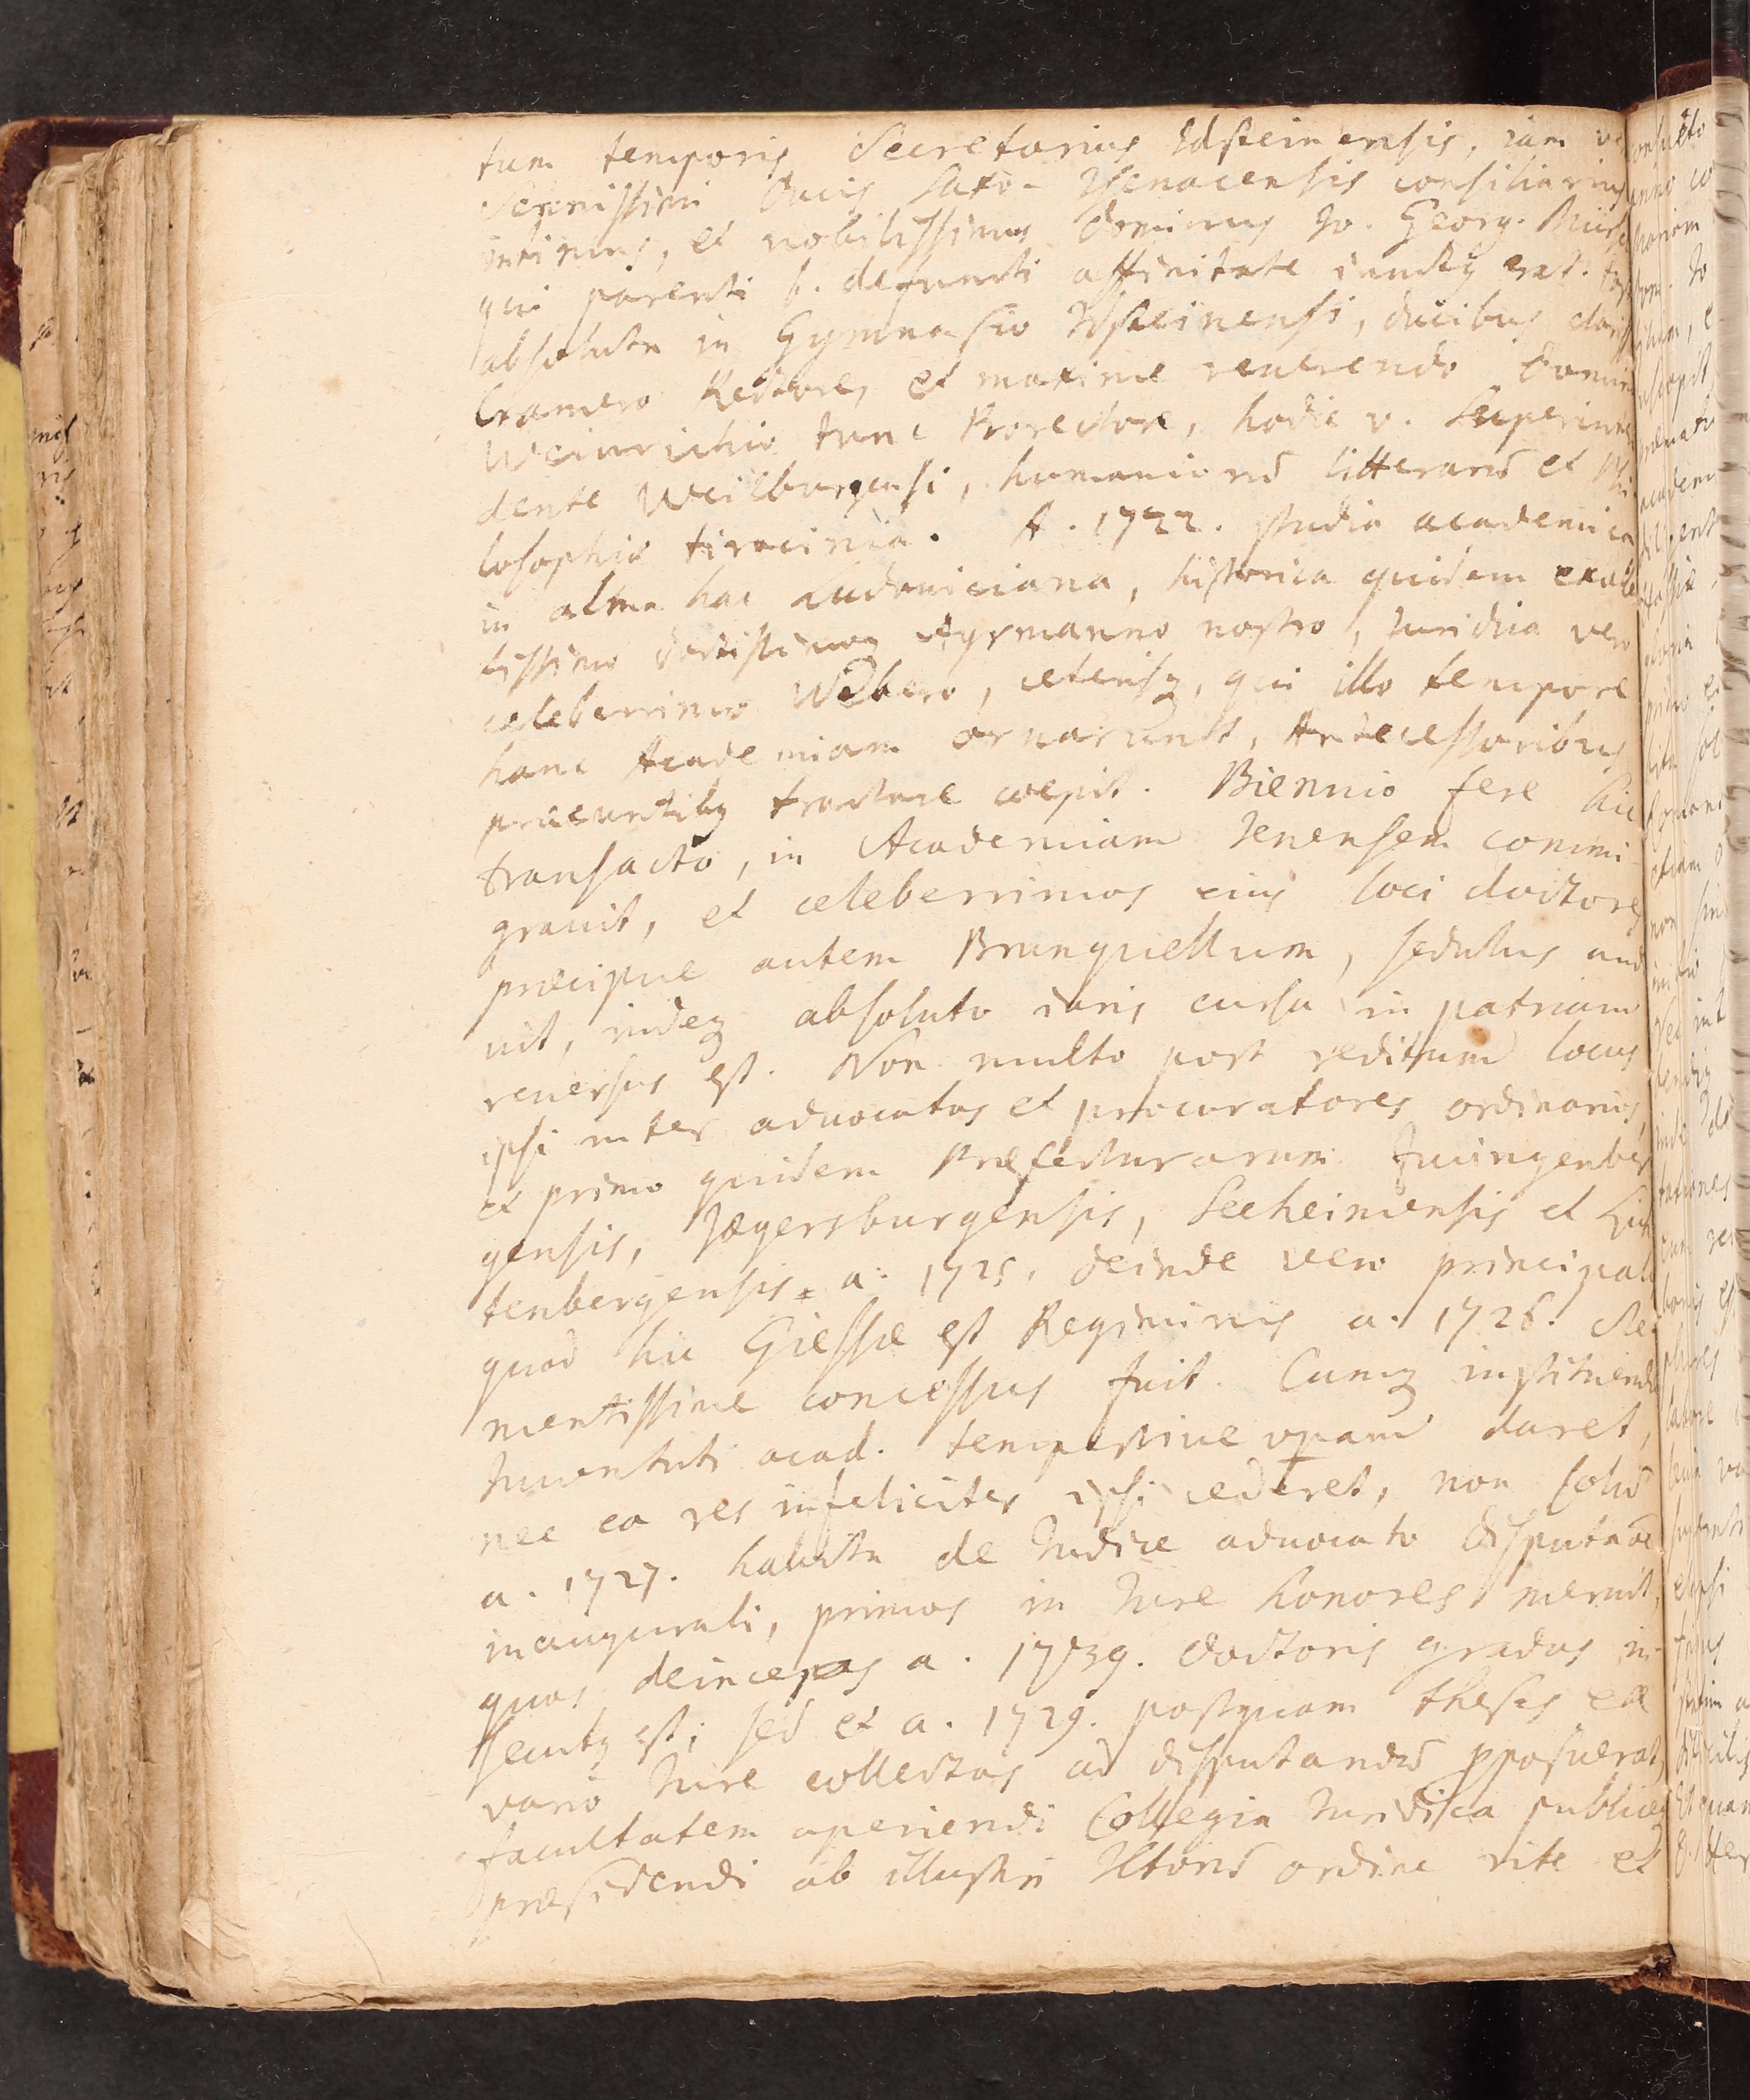 tum temporis Secretarius Idsteinensis, iam
Serenissimi Ducis Saxo-Isenacensis consiliarius
intimus, et nobilissimus Dominus Jo. Georg.
qui parenti b. defuncti affinitate iunctꝫ erat.
absoluta in Gymnasio Idsteinensi, ducibus
Cramero Rectore, et maxime reuerendo Domin
Weinrichio tunc Prorectore, hodie v. Superinten
dente Weilburgensi, humaniorū litterarū et Phi
losophiæ tirocinia. A. 1722. studia academica
in alma hac Ludouiciana, historica quidem exole
tissimo Ayrmanno nostro, Iuridica vero
celeberrimo Webero, ceterisqꝫ, qui illo tempore
hanc Academiam ornarunt, Antecessoribus
præeuntibꝫ tractare coepit. Biennio fere hic
transacto, in Academiam Ienensem commi-
grauit, et celeberrimos eius loci doctores
præcipue autem Brunquellum, sedulus aud
iuit, indeqꝫ absoluto iuris cursu in patriam
reuersus est. Non multo post reditum locus
ipsi inter aduocatos et procuratores ordinarios,
et primo quidem Præfecturarum Zuingenber
gensis, Jægersburgensis, Seeheimensis et Lich
tenbergensis a. 1725, deinde vero principali
quod hic Giessæ est Regiminis a. 1726. cle
mentissime concessus fuit. Cumqꝫ instituendæ
Iuuentuti acad. tempestiue operam daret,
nec ea res infeliciter ipsi cederet, non solū
a. 1727. habita de Iudice aduocato disputaōe
inaugurali, primos in Iure honores meruit,
quos deinceps a. 1739. doctoris gradus in-
secutꝫ est; sed et a. 1729. postquam theses ex
vario Iure collectas ad disputandū pposuerat,
facultatem aperiendi Collegia Iuridica publiceqꝫ
præsidendi ab illustri Ictorū ordine rite et